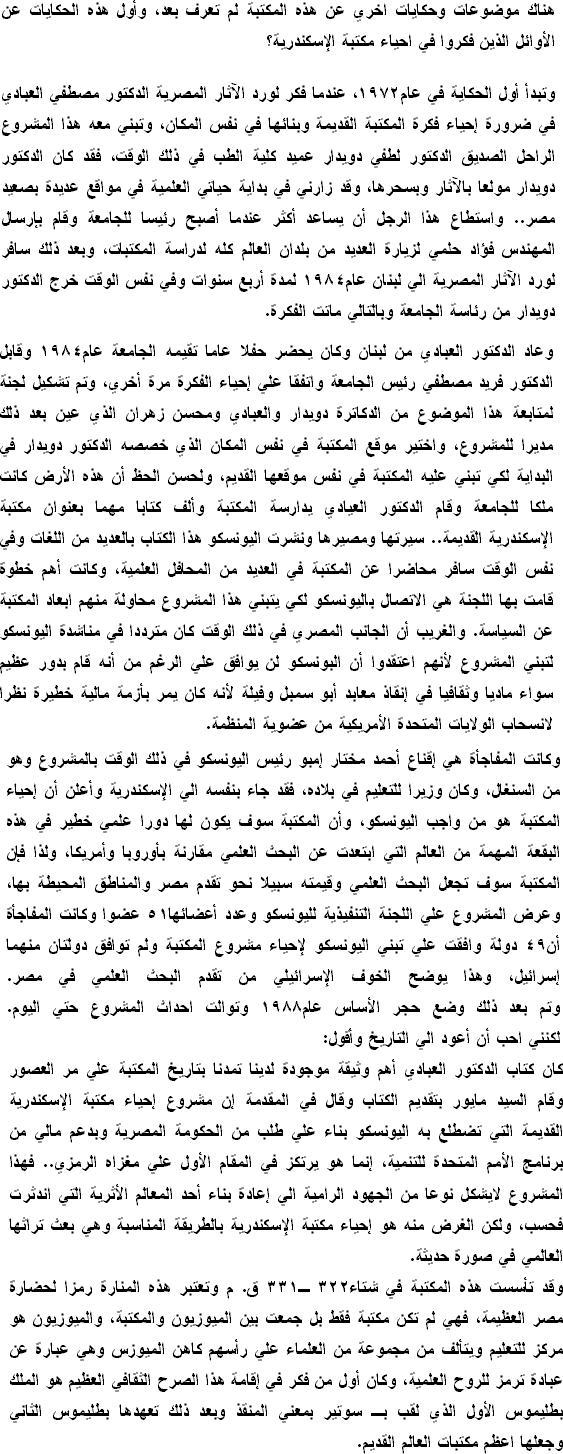 هناك موضوعات وحكايات اخري عن هذه المكتبة لم تعرف بعد، وأول هذه الحكايات عن
الأوائل الذين فكروا في احياء مكتبة الإسكندرية؟
وتبدأ أول الحكاية في عام١٩٧٢، عندما فكر لورد الآثار المصرية الدكتور مصطفي العبادي
في ضرورة إحياء فكرة المكتبة القديمة وبنائها في نفس المكان، وتبني معه هذا المشروع
الراحل الصديق الدكتور لطفي دويدار عميد كلية الطب في ذلك الوقت، فقد كان الدكتور
دويدار مولعا بالآثار وبسحرها، وقد زارني في بداية حياتي العلمية في مواقع عديدة بصعيد
مصر.. واستطاع هذا الرجل أن يساعد أكثر عندما أصبح رئيسا للجامعة وقام بإرسال
المهندس فؤاد حلمي لزيارة العديد من بلدان العالم كله لدراسة المكتبات، وبعد ذلك سافر
لورد الآثار المصرية الي لبنان عام١٩٨٤ لمدة أربع سنوات وفي نفس الوقت خرج الدكتور
دويدار من رئاسة الجامعة وبالتالي ماتت الفكرة.
وعاد الدكتور العبادي من لبنان وكان يحضر حفلا عاما تقيمه الجامعة عام١٩٨٤ وقابل
الدكتور فريد مصطفي رئيس الجامعة واتفقا علي إحياء الفكرة مرة أخري، وتم تشكيل لجنة
لمتابعة هذا الموضوع من الدكاترة دويدار والعبادي ومحسن زهران الذي عين بعد ذلك
مديرا للمشروع، واختير موقع المكتبة في نفس المكان الذي خصصه الدكتور دويدار في
البداية لكي تبني عليه المكتبة في نفس موقعها القديم، ولحسن الحظ أن هذه الأرض كانت
ملكا للجامعة وقام الدكتور العبادي يدارسة المكتبة وألف كتابا مهما بعنوان مكتبة
الإسكندرية القديمة.. سيرتها ومصيرها ونشرت اليونسكو هذا الكتاب بالعديد من اللغات وفي
نفس الوقت سافر محاضرا عن المكتبة في العديد من المحافل العلمية، وكانت أهم خطوة
قامت بها اللجنة هي الاتصال باليونسكو لكي يتبني هذا المشروع محاولة منهم ابعاد المكتبة
عن السياسة. والغريب أن الجانب المصري في ذلك الوقت كان مترددا في مناشدة اليونسكو
لتبني المشروع لأنهم اعتقدوا أن اليونسكو لن يوافق علي الرغم من أنه قام بدور عظيم
سواء ماديا وثقافيا في إنقاذ معابد أبو سمبل وفيلة لأنه كان يمر بأزمة مالية خطيرة نظرا
لانسحاب الولايات المتحدة الأمريكية من عضوية المنظمة.
وكانت المفاجأة هي إقناع أحمد مختار إمبو رئيس اليونسكو في ذلك الوقت بالمشروع وهو
من السنغال، وكان وزيرا للتعليم في بلاده، فقد جاء بنفسه الي الإسكندرية وأعلن أن إحياء
المكتبة هو من واجب اليونسكو، وأن المكتبة سوف يكون لها دورا علمي خطير في هذه
البقعة المهمة من العالم التي ابتعدت عن البحث العلمي مقارنة بأوروبا وأمريكا، ولذا فإن
المكتبة سوف تجعل البحث العلمي وقيمته سبيلا نحو تقدم مصر والمناطق المحيطة بها،
وعرض المشروع علي اللجنة التنفيذية لليونسكو وعدد أعضائها٥١ عضوا وكانت المفاجأة
أن٤٩ دولة وافقت علي تبني اليونسكو لإحياء مشروع المكتبة ولم توافق دولتان منهما
إسرائيل، وهذا يوضح الخوف الإسرائيلي من تقدم البحث العلمي في مصر.
وتم بعد ذلك وضع حجر الأساس عام١٩٨٨ وتوالت احداث المشروع حتي اليوم.
لكنني احب أن أعود الي التاريخ وأقول:
كان كتاب الدكتور العبادي أهم وثيقة موجودة لدينا تمدنا بتاريخ المكتبة علي مر العصور
وقام السيد مايور بتقديم الكتاب وقال في المقدمة إن مشروع إحياء مكتبة الإسكندرية
القديمة التي تضطلع به اليونسكو بناء علي طلب من الحكومة المصرية وبدعم مالي من
برنامج الأمم المتحدة للتنمية، إنما هو يرتكز في المقام الأول علي مغزاه الرمزي.. فهذا
المشروع لايشكل نوعا من الجهود الرامية الي إعادة بناء أحد المعالم الأثرية التي اندثرت
فحسب، ولكن الغرض منه هو إحياء مكتبة الإسكندرية بالطريقة المناسبة وهي بعث تراثها
العالمي في صورة حديثة.
وقد تأسست هذه المكتبة في شتاء٣٢٢ ــ٣٣١ ق. م وتعتبر هذه المنارة رمزا لحضارة
مصر العظيمة، فهي لم تكن مكتبة فقط بل جمعت بين الميوزيون والمكتبة، والميوزيون هو
مركز للتعليم ويتألف من مجموعة من العلماء علي رأسهم كاهن الميوزس وهي عبارة عن
عبادة ترمز للروح العلمية، وكان أول من فكر في إقامة هذا الصرح الثقافي العظيم هو الملك
بطليموس الأول الذي لقب بـــ سوتير بمعني المنقذ وبعد ذلك تعهدها بطليموس الثاني
وجعلها اعظم مكتبات العالم القديم.